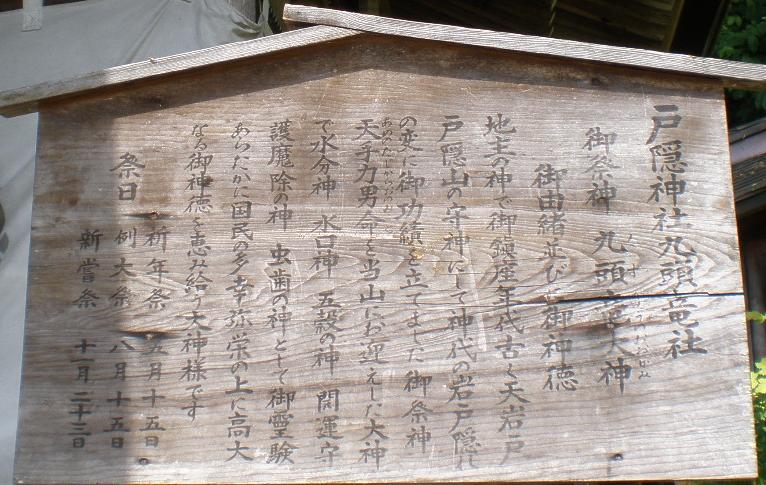 戸隠神社九頭竜社
御祭神 九頭竜大神
御由緒並びに御神徳
地主の神で御鎮座年代古く天岩戸
戸隠山の守神にして神代の岩戸隠れ
の変に御功績を立てました御祭神
天手力男命を当山にお迎えした大神
で水分神 水口神 五穀の神 開運守
護魔除の神 虫歯の神として御霊験
あらたかに国民の多幸弥栄の上に高大
なる御神徳を恵み給う大神様です
祭日 祈年祭 五月十五日
例大祭 八月十五日
新嘗祭 十一月二十三日